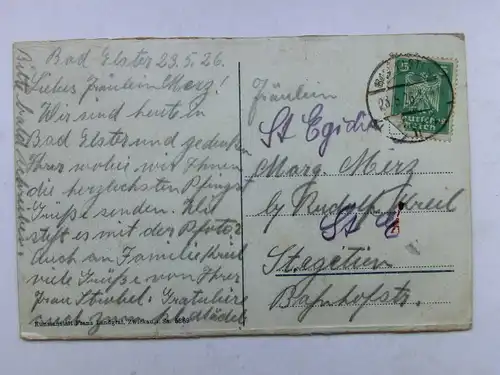 Bad Elster 23.5.26.
Liebes Fräulein Merz!
Wir sind heute in
Bad Elster und gedenken
Ihrer wobei wir Ihnen
die herzlichsten Pfingst
Grüße senden. Wie
steht es mit der
Auch an Familie Kreil
viele Grüße von Ihrer
Frau Strobel. Gratuliere
auch zum
Bitte bald schreiben.
Kunstanstalt Franz Landgraf, Zwickau i. Sa.
Fräulein
St Egidien
Marg. Merz
by Rudolf Kreil
St. E
St. Egidien
Bahnhofstr.
5
Deutsches
Reich